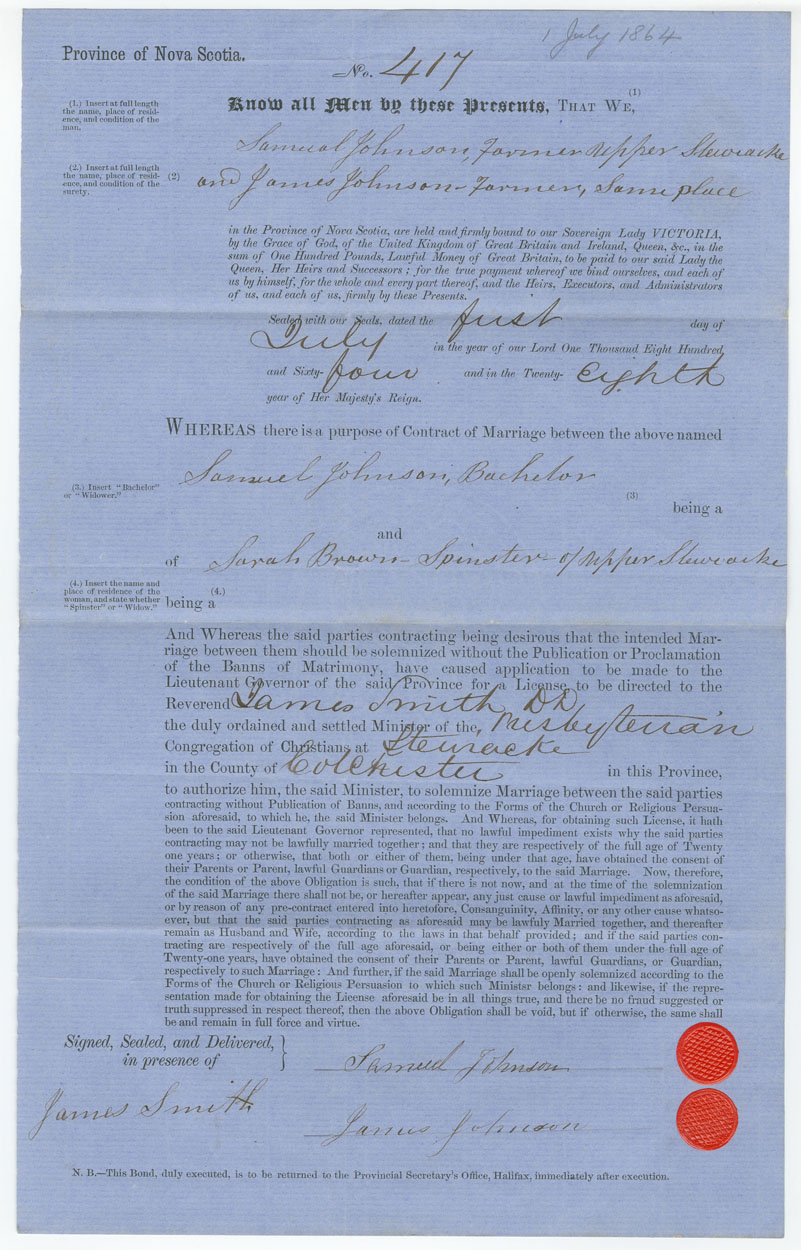 1 July 1864
Province of Nova Scotia.
No. 417
(1)
Know all Men by these Presents, THAT WE,
(1.) Insert at full length
the name, place of resid-
ence, and condition of the
man.
Samual Johnson, Farmer Upper Stewiacke
(2.) Insert at full length
the name, place of resid-
ence, and condition of the
surety.
(2) and James Johnson - Farmer, Same place
in the Province of Nova Scotia, are held and firmly bound to our Sovereign Lady VICTORIA,
by the Grace of God, of the United Kingdom of Great Britain and Ireland, Queen, &c., in the
sum of One Hundred Pounds, Lawful Money of Great Britain, to be paid to our said Lady the
Queen, Her Heirs and Successors; for the true payment whereof we bind ourselves, and each of
us by himself, for the whole and every part thereof, and the Heirs, Executors, and Administrators
of us, and each of us, firmly by these Presents.
Sealed with our Seals, dated the first day of
July in the year of our Lord One Thousand Eight Hundred
and Sixty- four and in the Twenty- Eighth
year of Her Majesty's Reign.
WHEREAS there is a purpose of Contract of Marriage between the above named
Samuel Johnson, Bachelor
(3.) Insert "Bachelor"
or "Widower."
(3)
being a
and
of Sarah Brown - Spinster - of Upper Stewiacke
(4.) Insert the name and
place of residence of the
woman, and state whether
"Spinster" or "Widow."
(4.)
being a
And Whereas the said parties contracting being desirous that the intended Mar-
riage between them should be solemnized without the Publication or Proclamation
of the Banns of Matrimony, have caused application to be made to the
Lieutenant Governor of the said Province for a License, to be directed to the
Reverend James Smith DD
the duly ordained and settled Minister of the, Presbyterian
Congregation of Christians at Stewiacke
in the County of Colchester in this Province,
to authorize him, the said Minister, to solemnize Marriage between the said parties
contracting without Publication of Banns, and according to the Forms of the Church or Religious Persua-
sion aforesaid, to which he, the said Minister belongs. And Whereas, for obtaining such License, it hath
been to the said Lieutenant Governor represented, that no lawful impediment exists why the said parties
contracting may not be lawfully married together; and that they are respectively of the full age of Twenty
one years; or otherwise, that both or either of them, being under that age, have obtained the consent of
their Parents or Parent, lawful Guardians or Guardian, respectively, to the said Marriage. Now, therefore,
the condition of the above Obligation is such, that if there is not now, and at the time of the solemnization
of the said Marriage there shall not be, or hereafter appear, any just cause or lawful impediment as aforesaid,
or by reason of any pre-contract entered into heretofore, Consanguinity, Affinity, or any other cause whatso-
ever, but that the said parties contracting as aforesaid may be lawfuly Married together, and thereafter
remain as Husband and Wife, according to the laws in that behalf provided; and if the said parties con-
tracting are respectively of the full age aforesaid, or being either or both of them under the full age of
Twenty-one years, have obtained the consent of their Parents or Parent, lawful Guardians, or Guardian,
respectively to such Marriage: And further, if the said Marriage shall be openly solemnized according to the
Forms of the Church or Religious Persuasion to which such Ministsr belongs: and likewise, if the repre-
sentation made for obtaining the License aforesaid be in all things true, and there be no fraud suggested or
truth suppressed in respect thereof, then the above Obligation shall be void, but if otherwise, the same shall
be and remain in full force and virtue.
Signed, Sealed, and Delivered,
in presence of
Samuel Johnson
James Smith
James Johnson
N. B.—This Bond, duly executed, is to be returned to the Provincial Secretary's Office, Halifax, immediately after execution.